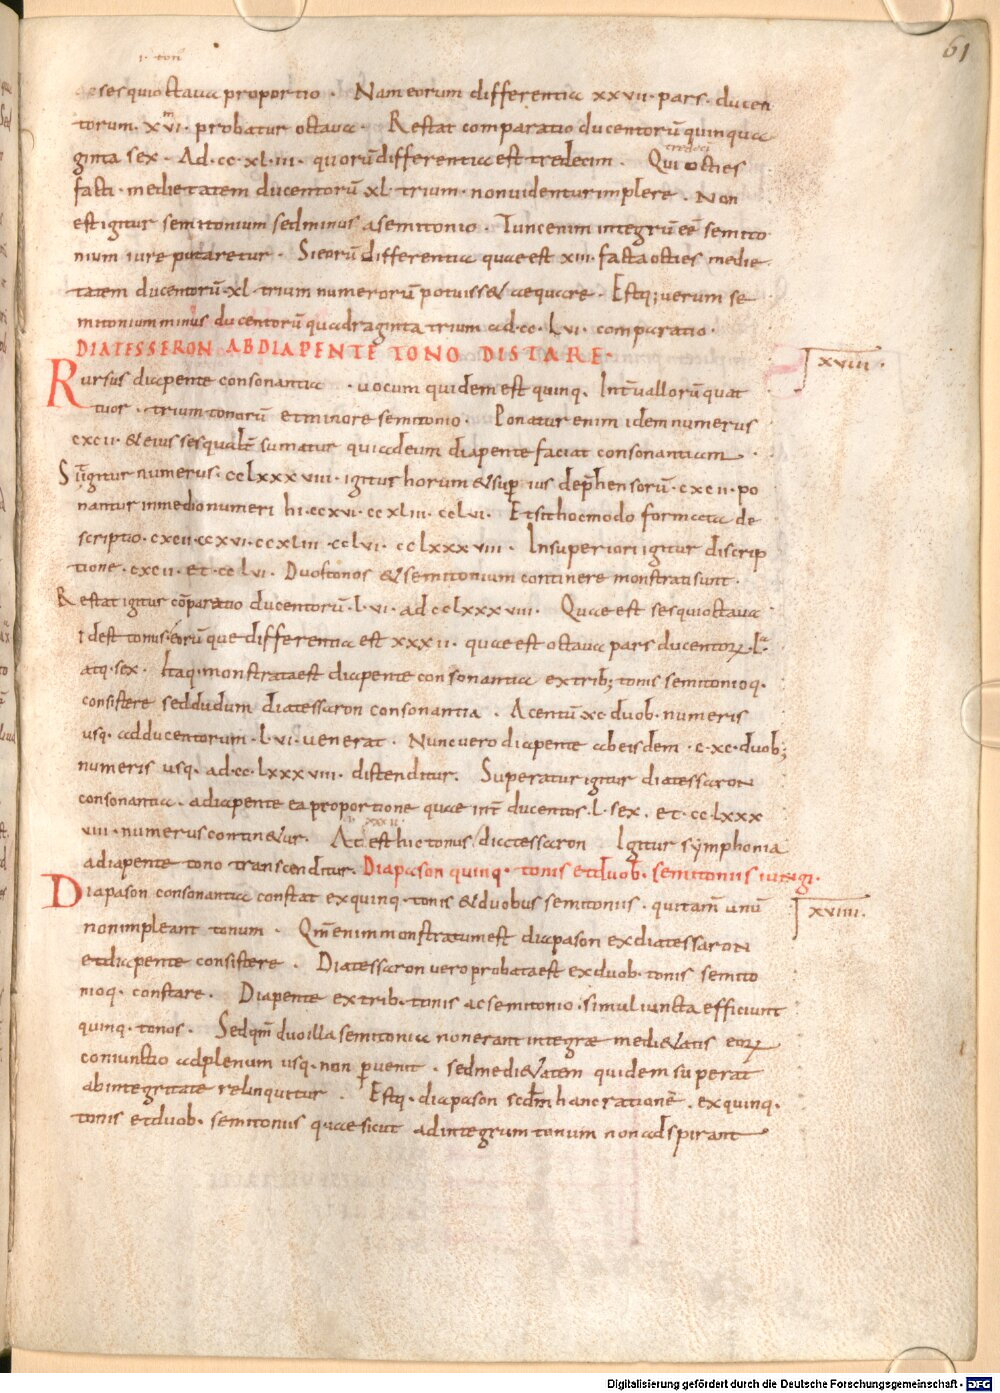 61
i. ton
sesquioctaua proportio . Nam eorum differentia xxvii . pars . ducen
torum . xvi . probatur octaua . Restat comparatio ducentorū quinqua
ginta sex . Ad . cc . xl . iii . quorū differentia est tredecim . Qui octies
facti . medietatem ducentorū xl trium . non uidentur implere . Non
est igitur semitonium sed minus a semitonio . Tunc enim integrū eē semito
nium iure putaretur . Si eorū differentia quae est xiii . facta octies medie
tatem ducentorū . xl trium numerorū potuisset aequare . Estq; uerum se
mitonium minus ducentorū quadraginta trium ad . cc . lvi . comparatio .
DIATESSERON AB DIAPENTE TONO DISTARE .
xviii .
Rursus diapente consonantia . uocum quidem est quinq . Int̄uallorū quat
tuor . trium tonorū et minore semitonio . Ponatur enim idem numerus
cxcii . & eius sesqualt̄ sumatur qui ad eum diapente faciat consonantiam .
Sit igitur numerus . cclxxxviii . igitur horum & sup̄ius dep̄hensorū . cxcii . po
nantur in medio numeri hi . ccxvi . ccxliii . cclvi . Et sit hoc modo formata de
scriptio . cxcii . ccxvi . ccxliii . cclvi . cclxxxviii . In superiori igitur discrip
tione . cxcii . et . cclvi . Duos tonos & semitonium continere monstrati sunt .
Restat igitur cōparatio ducentorū . l . vi . ad cclxxxviii . Quae est sesquioctaua
idest tonus . eorū que differentia est xxxii . quae est octaua pars ducentoꝝ . l a
atq . sex . Itaq . monstrata est diapente consonantia ex trib; tonis semitonioq .
consistere sed dudum diatessaron consonantia . A centū xc duob . numeris
usq . ad ducentorum . l . vi . uenerat . Nunc uero diapente ab eisdem . c . xc . duob;
numeris usq . ad . cc . lxxxviii . distenditur . Superatur igitur diatessaron
consonantia . a diapente ea proportione quae int̄ ducentos . l . sex . et . cc lxxx
viii . numerus contin&ur . At est hic tonus / diatessaron Igitur symphonia
a diapente tono transcenditur . Diapason quinq . tonis et duob . semitoniis iungi .
Diapason consonantia constat ex quinq . tonis & duobus semitoniis . qui tam̄ unū
xviiii .
non impleant tonum . Qm̄ enim monstratum est diapason ex diatessaron
et diapente consistere . Diatessaron uero probata est ex duob . tonis semito
nioq . constare . Diapente ex trib . tonis ac semitonio . simul iuncta efficiunt
quinq . tonos . Sed qm̄ duo illa semitonia non erant integrae medi&atis eoꝝ
coniunctio ad plenum usq . non p̄uenit . sed medi&atem quidem superat
ab integritate relinquitur . Estq . diapason scdm̄ hanc rationē . ex quinq .
tonis et duob . semitoniis quae sicut ad integrum tonum non adspirant
Digitalisierung gefördert durch die Deutsche Forschungsgemeinschaft - DFG